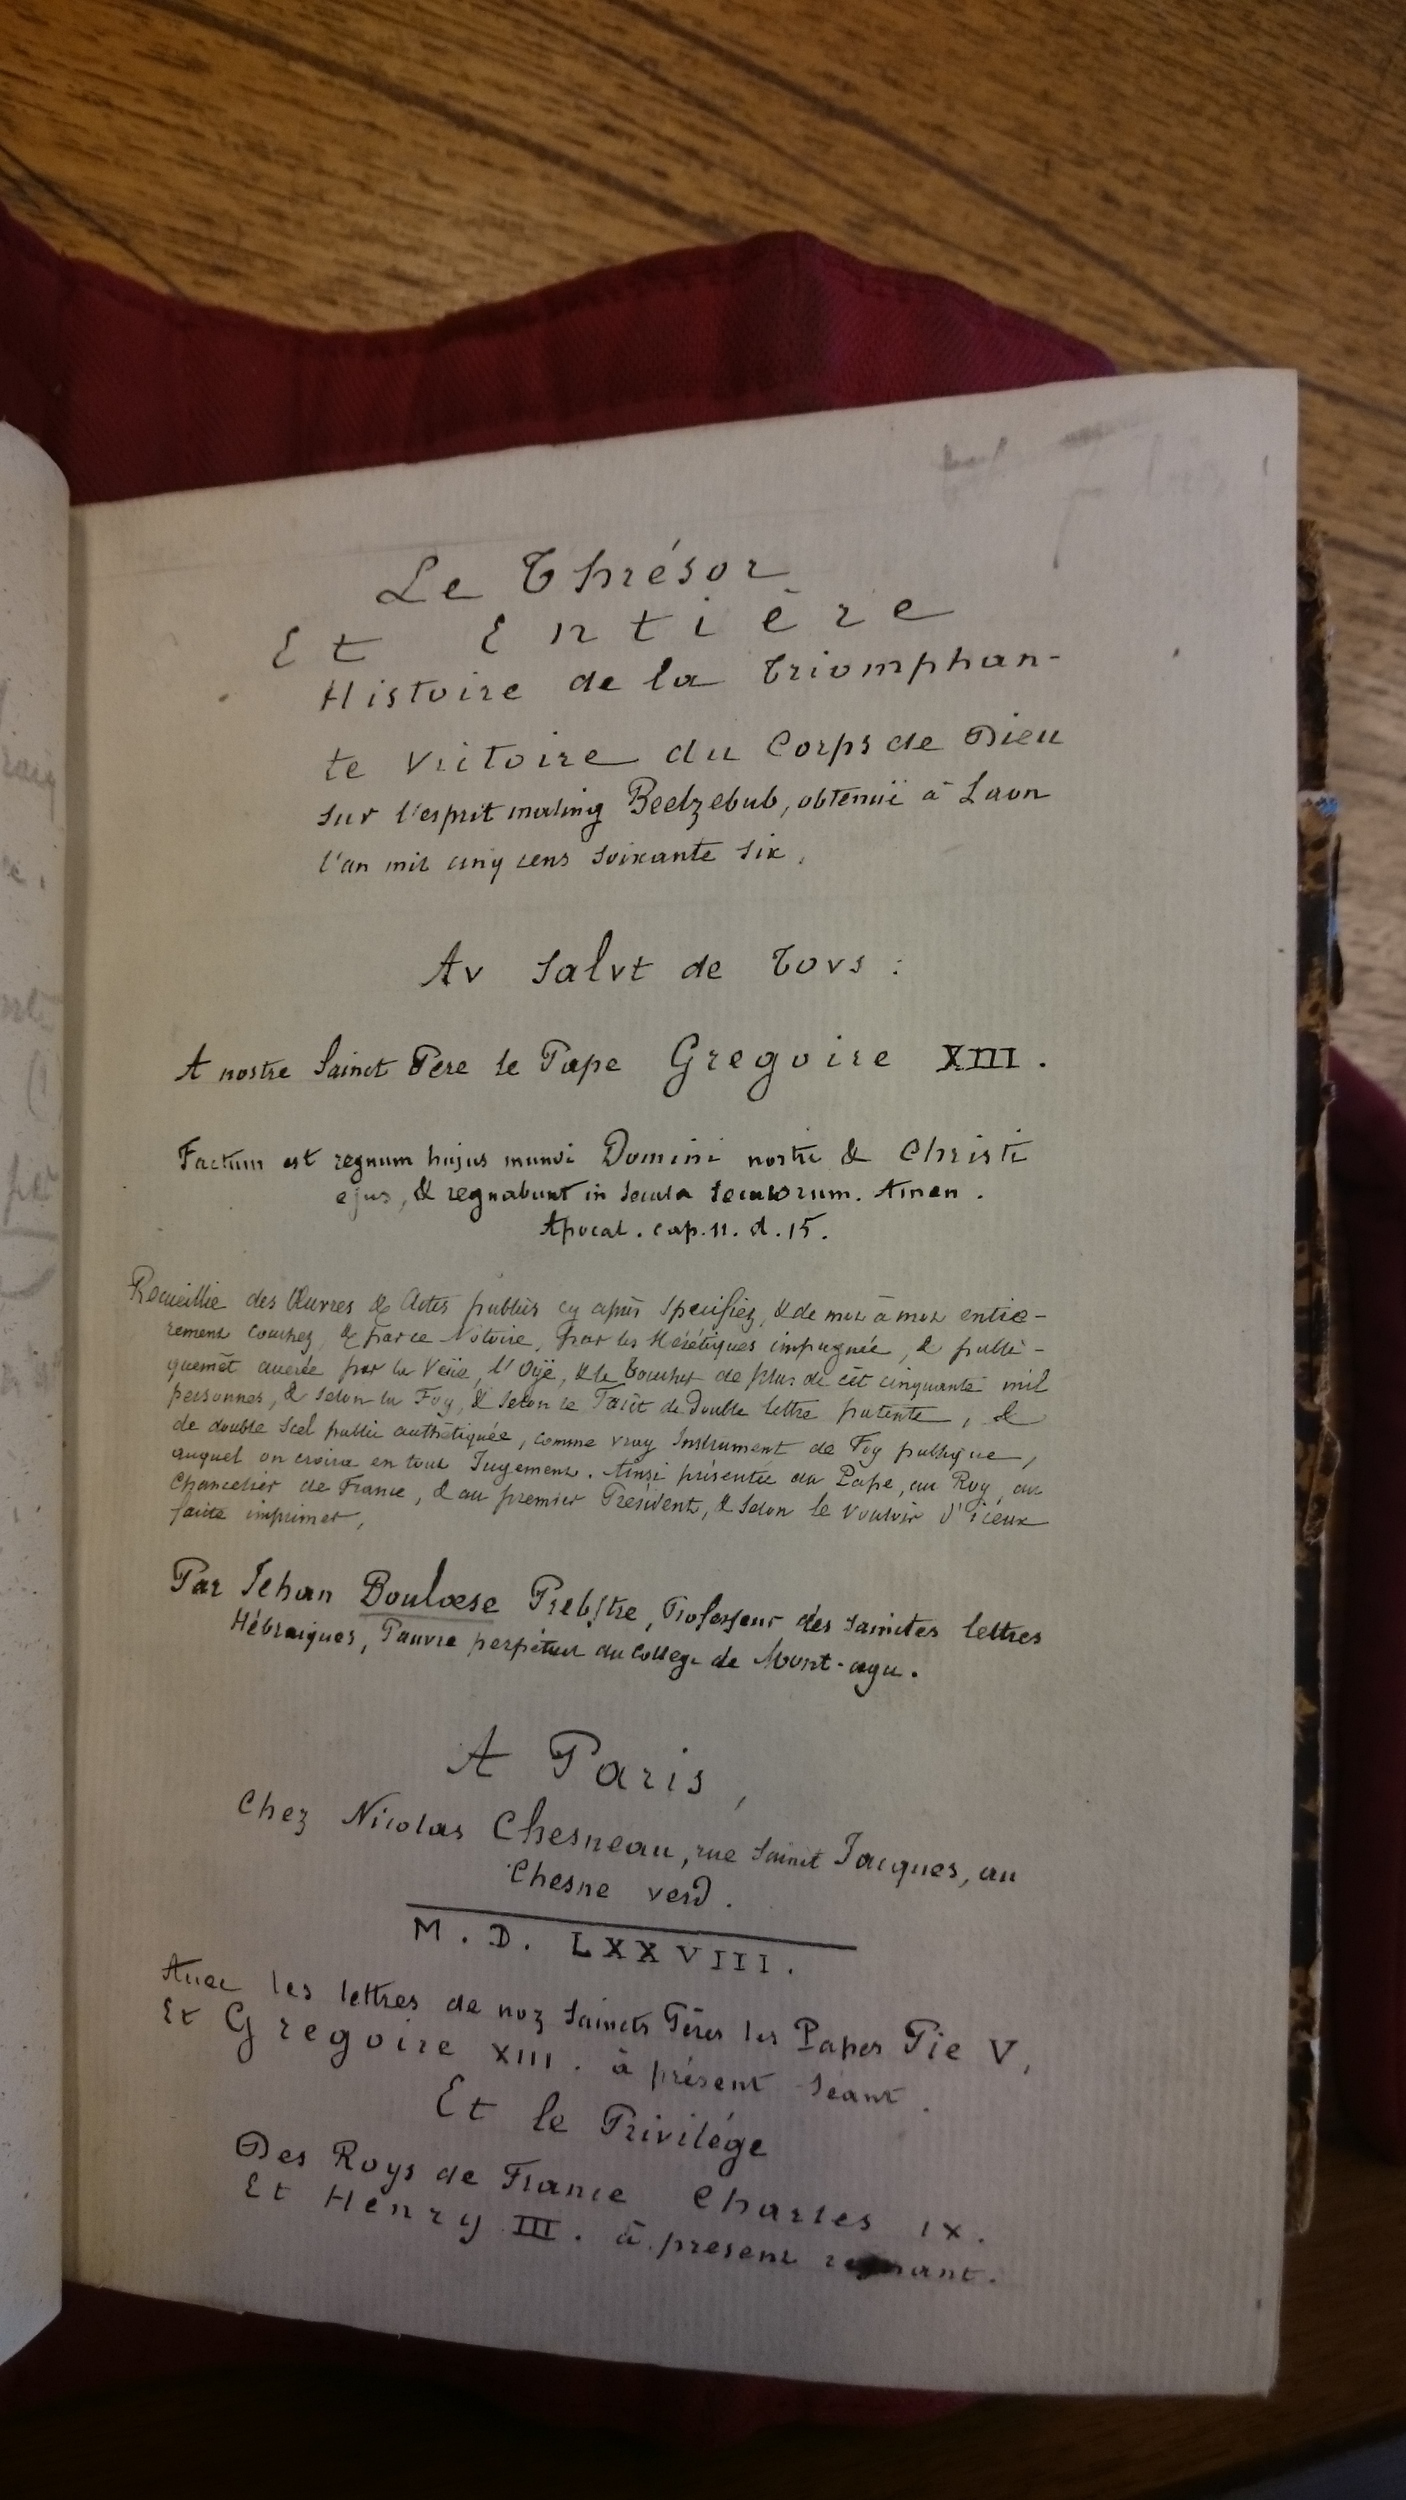 Le Thrésor
Et Entière
Histoire de la Triomphan-
te Victoire du Corps de Dieu
sur l'esprit maling Beelzebub, obtenuë à Laon
l'an mil cinq cens soixante six.
Av Salvt de Tovs :
A nostre Sainct Pere le Pape Gregoire XIII.
Factum est regnum hujus mundi Domini nostri & Christi
ejus, & regnabunt in secula seculorum. Amen.
Apocal. cap. 11. d. 15.
Recueillie des Œuvres & Actes publics cy après spécifiez, & de mot à mot entie-
rement couchez, & par ce Notoire, par les Hérétiques impugnée, & publi-
quemēt averée par la Veüe, l'Oÿe, & le toucher de plus de cēt cinquante mil
personnes, & selon la Foy, & selon le Faict de double lettre patente, &
de double Scel public authētiquée, comme vray Instrument de Foy publique,
auquel on croira en tout Jugement. Ainsi présentée au Pape, au Roy, au
Chancelier de France, & au premier Président, & selon le Vouloir d'iceux
faicte imprimer,
Par Jehan Boulœse Prebstre, Professeur des sainctes lettres
Hébraiques, Pauvre perpétuel du College de Mont-agu.
A Paris,
Chez Nicolas Chesneau, rue Sainct Jacques, au
Chesne verd.
M. D. LXXVIII.
Auec les lettres de noz Saincts Pères les Papes Pie V,
Et Gregoire XIII. à présent Séant.
Et le Privilége
Des Roys de France Charles IX.
Et Henry III. à present regnant.